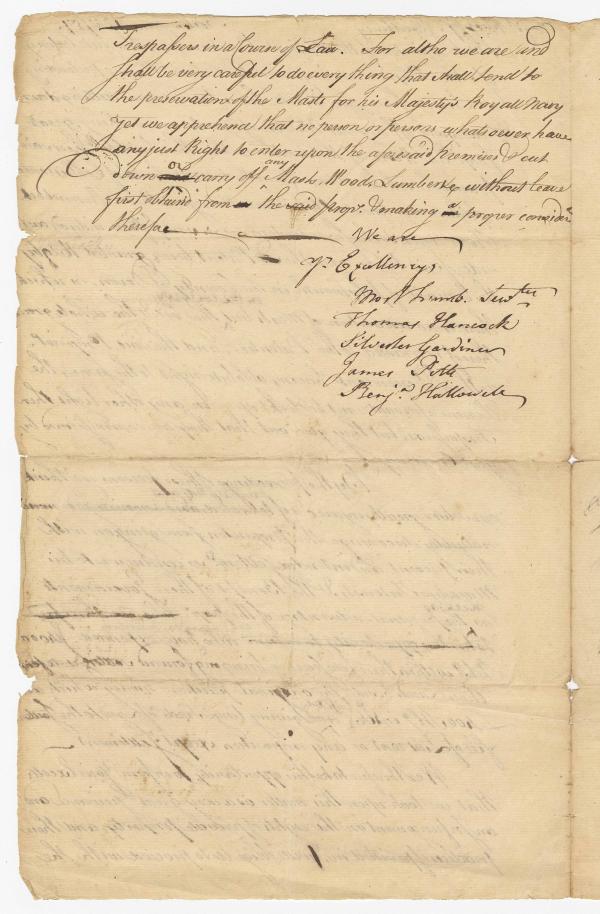 Trespassers in a Course of Law. For altho we are and
shall be very careful to do every thing that shall tend to
the preservation of the Masts for his Majestys Royall Navy
yet we apprehend that no person or persons whatsoever have
any just Right to enter upon the aforesaid premises & cut
down or carry off any Mast, Wood, Lumber &c without leave
first obtaind from the said propr. & making a proper consider
therefor
We are
Yr Excellencys
most humb. Servts
Thomas Hancock
Silvester Gardiner
James Pitts
Benja. Hallowell